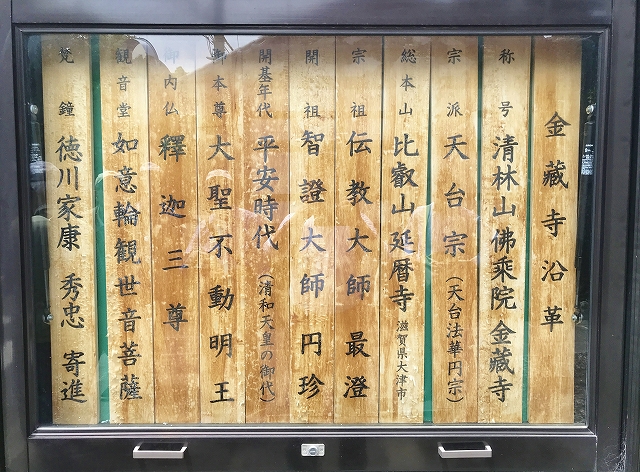 金藏寺沿革
称号 清林山佛乘院金藏寺
宗派 天台宗(天台法華円宗)
総本山 比叡山延暦寺 滋賀県大津市
宗祖 伝教大師 最澄
開祖 智證大師 円珍
開基年代 平安時代(清和天皇の御代)
御本尊 大聖不動明王
御内仏 釋迦三尊
観音堂 如意輪観世音菩薩
梵鐘 徳川家康 秀忠 寄進